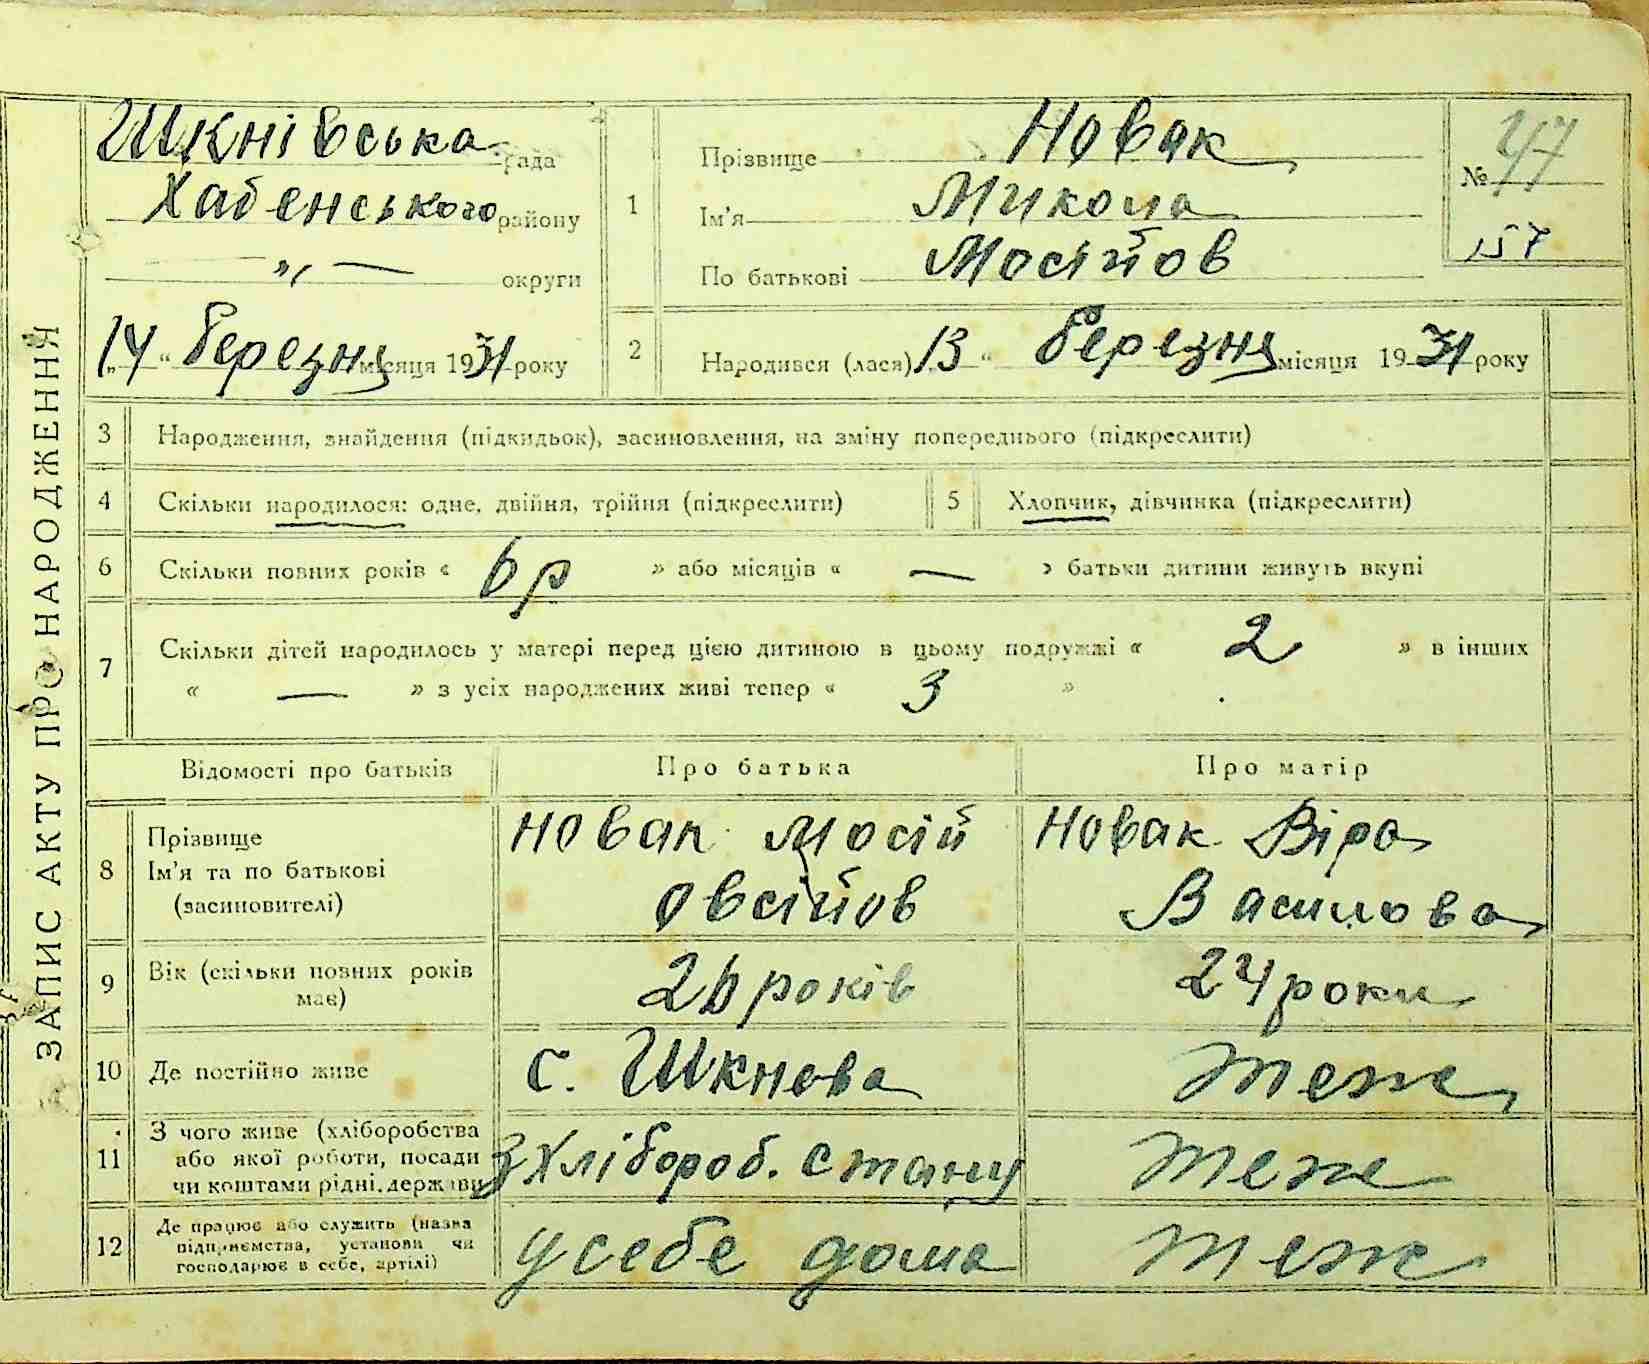 ЗАПИС АКТУ ПРО НАРОДЖЕННЯ
Шкнівська рада
Хабенського району
— „ — округи
„14“ березня місяця 1931 року
1
Прізвище Новак
Ім'я Микола
По батькові Мосійов
№ 47
157
2
Народився (лася) 13 “ березня місяця 1931 року
3 Народження, знайдення (підкидьок), засиновлення, на зміну попереднього (підкреслити)
4 Скільки народилося: одне, двійня, трійня (підкреслити) 5 Хлопчик, дівчинка (підкреслити)
6 Скільки повних років « 6 р » або місяців « — » батьки дитини живуть вкупі
7 Скільки дітей народилось у матері перед цією дитиною в цьому подружжі « 2 » в інших
« — » з усіх народжених живі тепер « 3 »
Відомості про батьків Про батька Про матір
8 Прізвище
Ім'я та по батькові
(засиновителі)
Новак Мосій
Овсійов
Новак Віра
Васиłова
9 Вік (скільки повних років
має)
26 років
24 роки
10 Де постійно живе
с. Шкнева
теж
11 З чого живе (хліборобства
або якої роботи, посади
чи коштами рідні, держави
з хлібороб. стану
теж
12 Де працює або служить (назва
підприємства, установи чи
господарює в себе, артілі)
у себе дома
теж